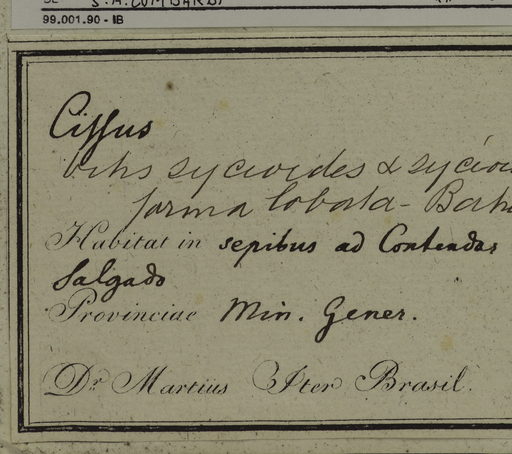 S. A. LOMBARDI
99.001.90 - IB
Cissus
Vitis sycioides & sycioi
forma lobata - Bak
Habitat in sepibus ad Contendas
Salgado
Provinciae Min. Gener.
Dr. Martius Iter Brasil.